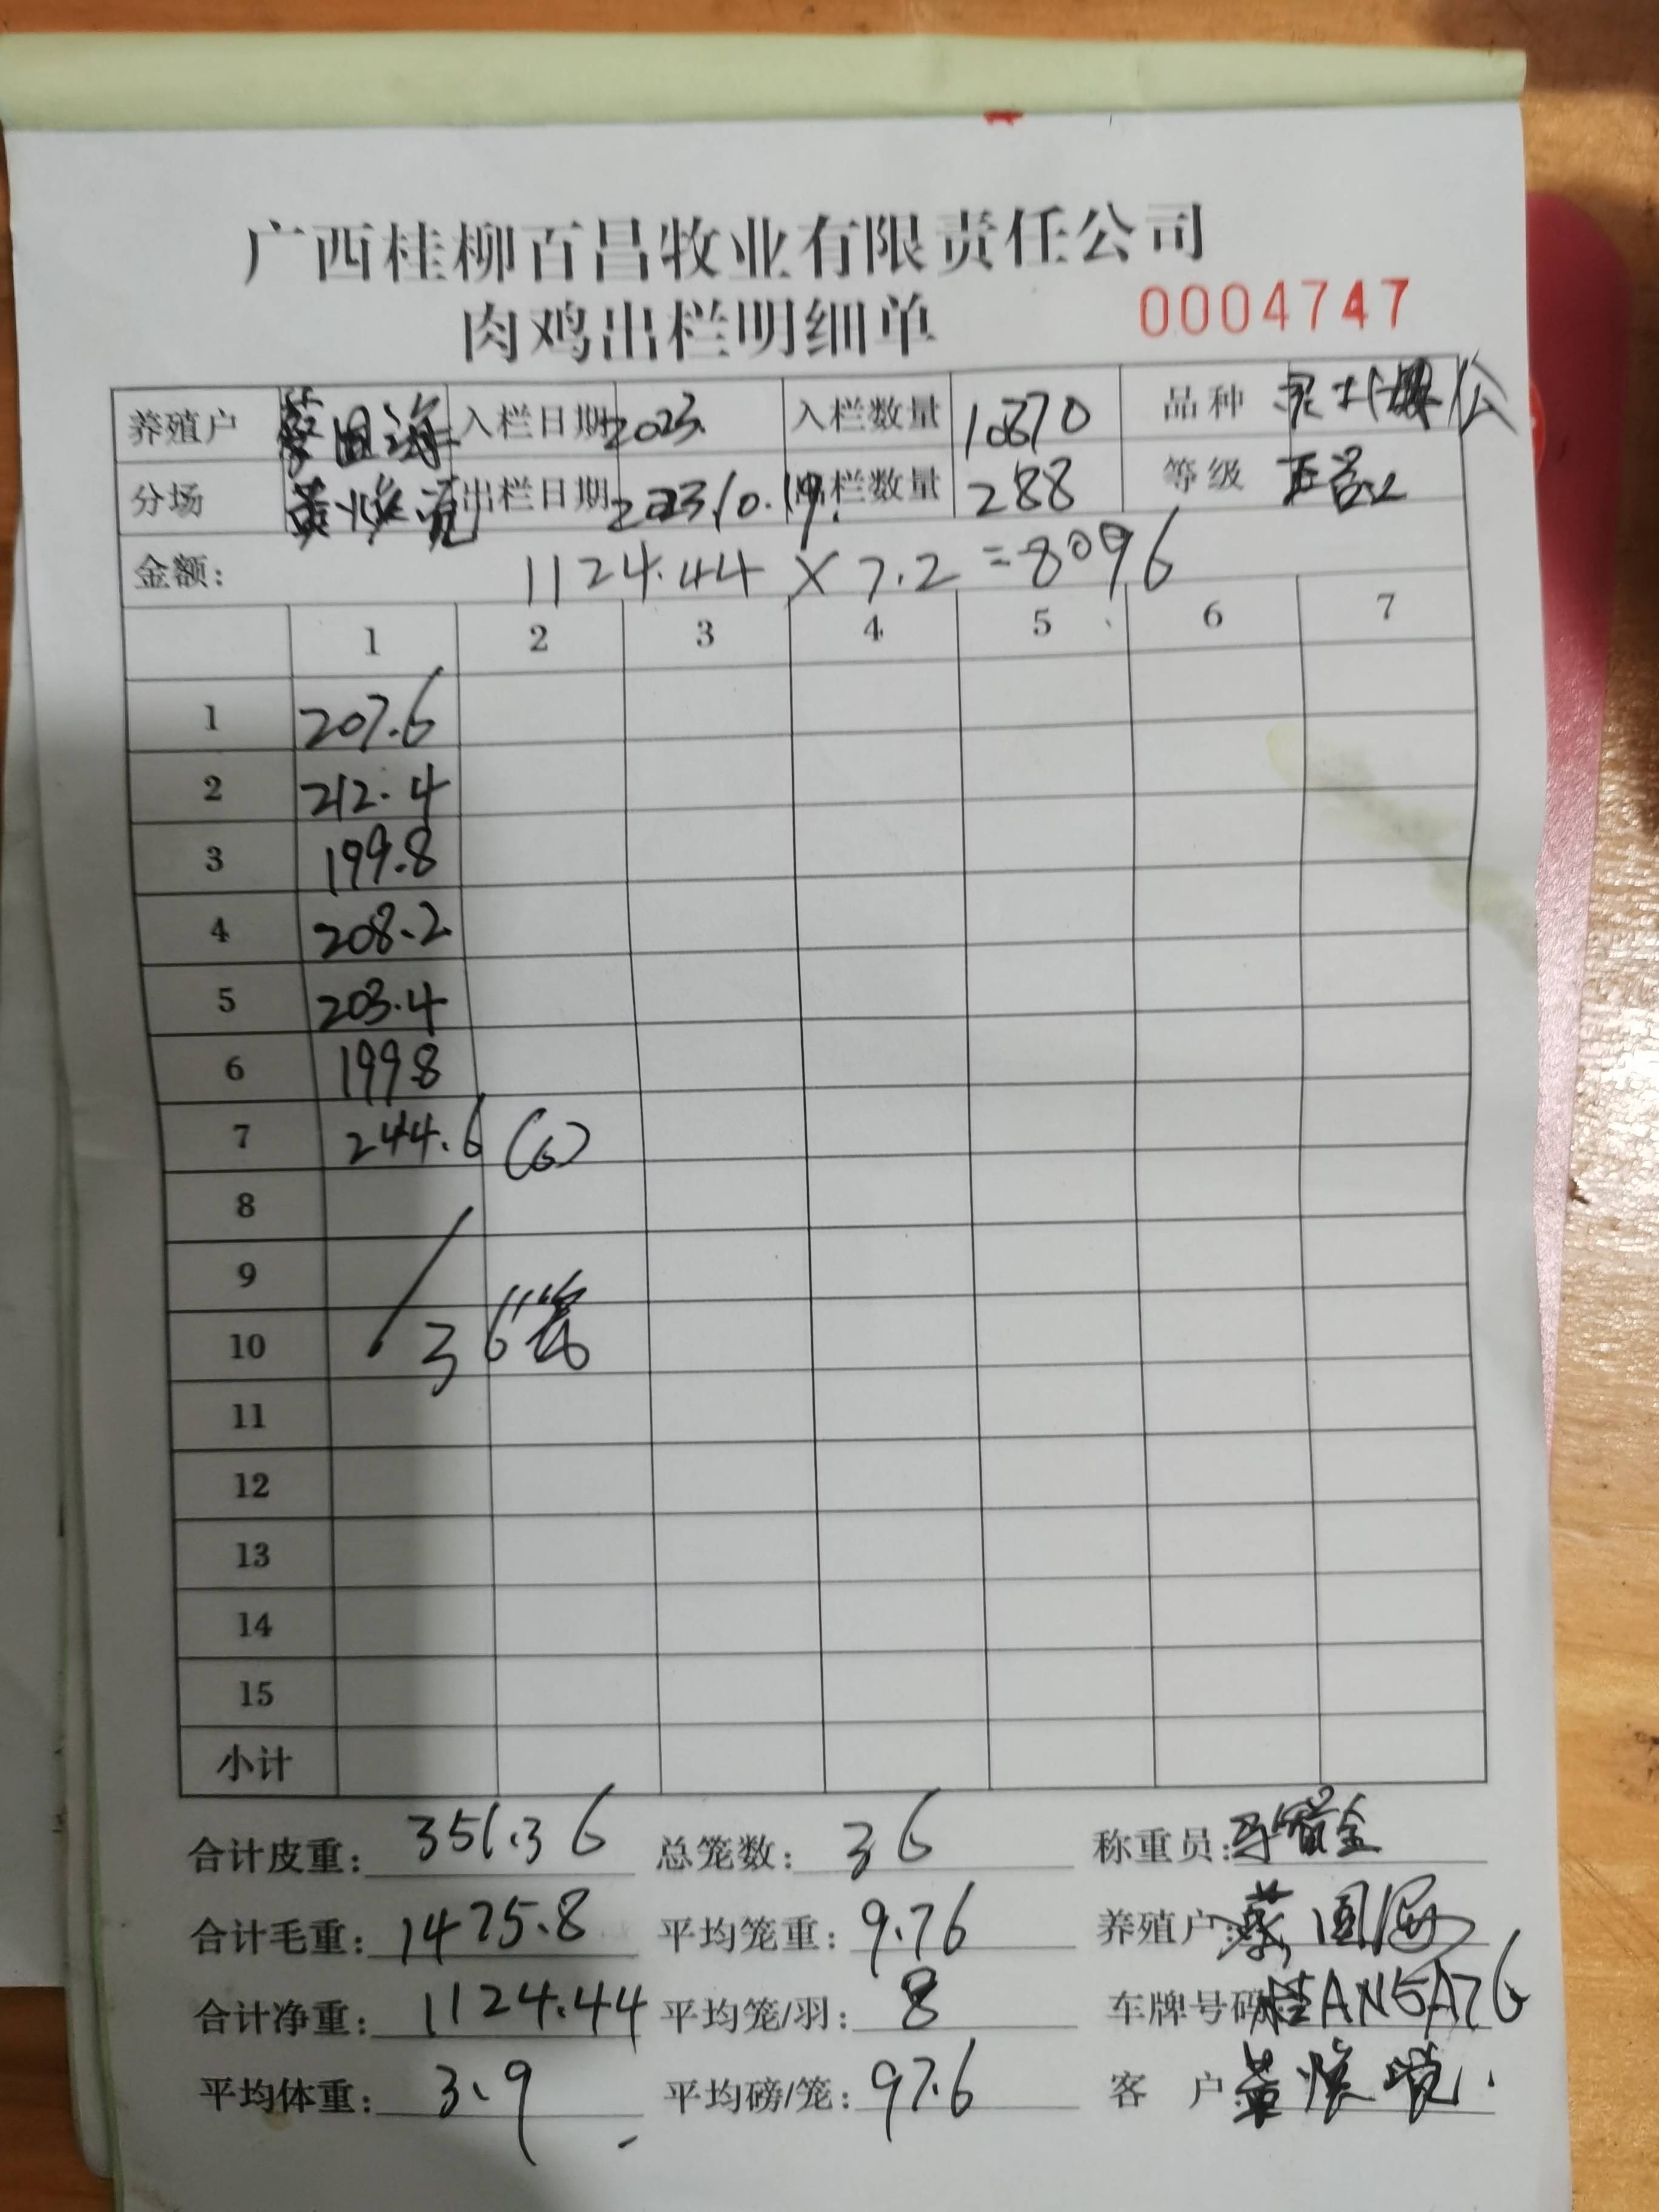 广西桂柳百昌牧业有限责任公司
肉鸡出栏明细单 0004747
养殖户 蔡国海 入栏日期 2023. 入栏数量 10870 品种 公
分场 出栏日期 2023.10.19. 出栏数量 288 等级
金额: 1124.44 × 7.2 = 8096
1 2 3 4 5 6 7
1 207.6
2 212.4
3 199.8
4 208.2
5 203.4
6 199.8
7 244.6 (6)
8
9
10 36笼
11
12
13
14
15
小计
合计皮重: 351.36 总笼数: 36 称重员:
合计毛重: 1475.8 平均笼重: 9.76 养殖户: 蔡国海
合计净重: 1124.44 平均笼/羽: 8 车牌号码: 桂AN5A76
平均体重: 3.9 平均磅/笼: 97.6 客户: 黄焕